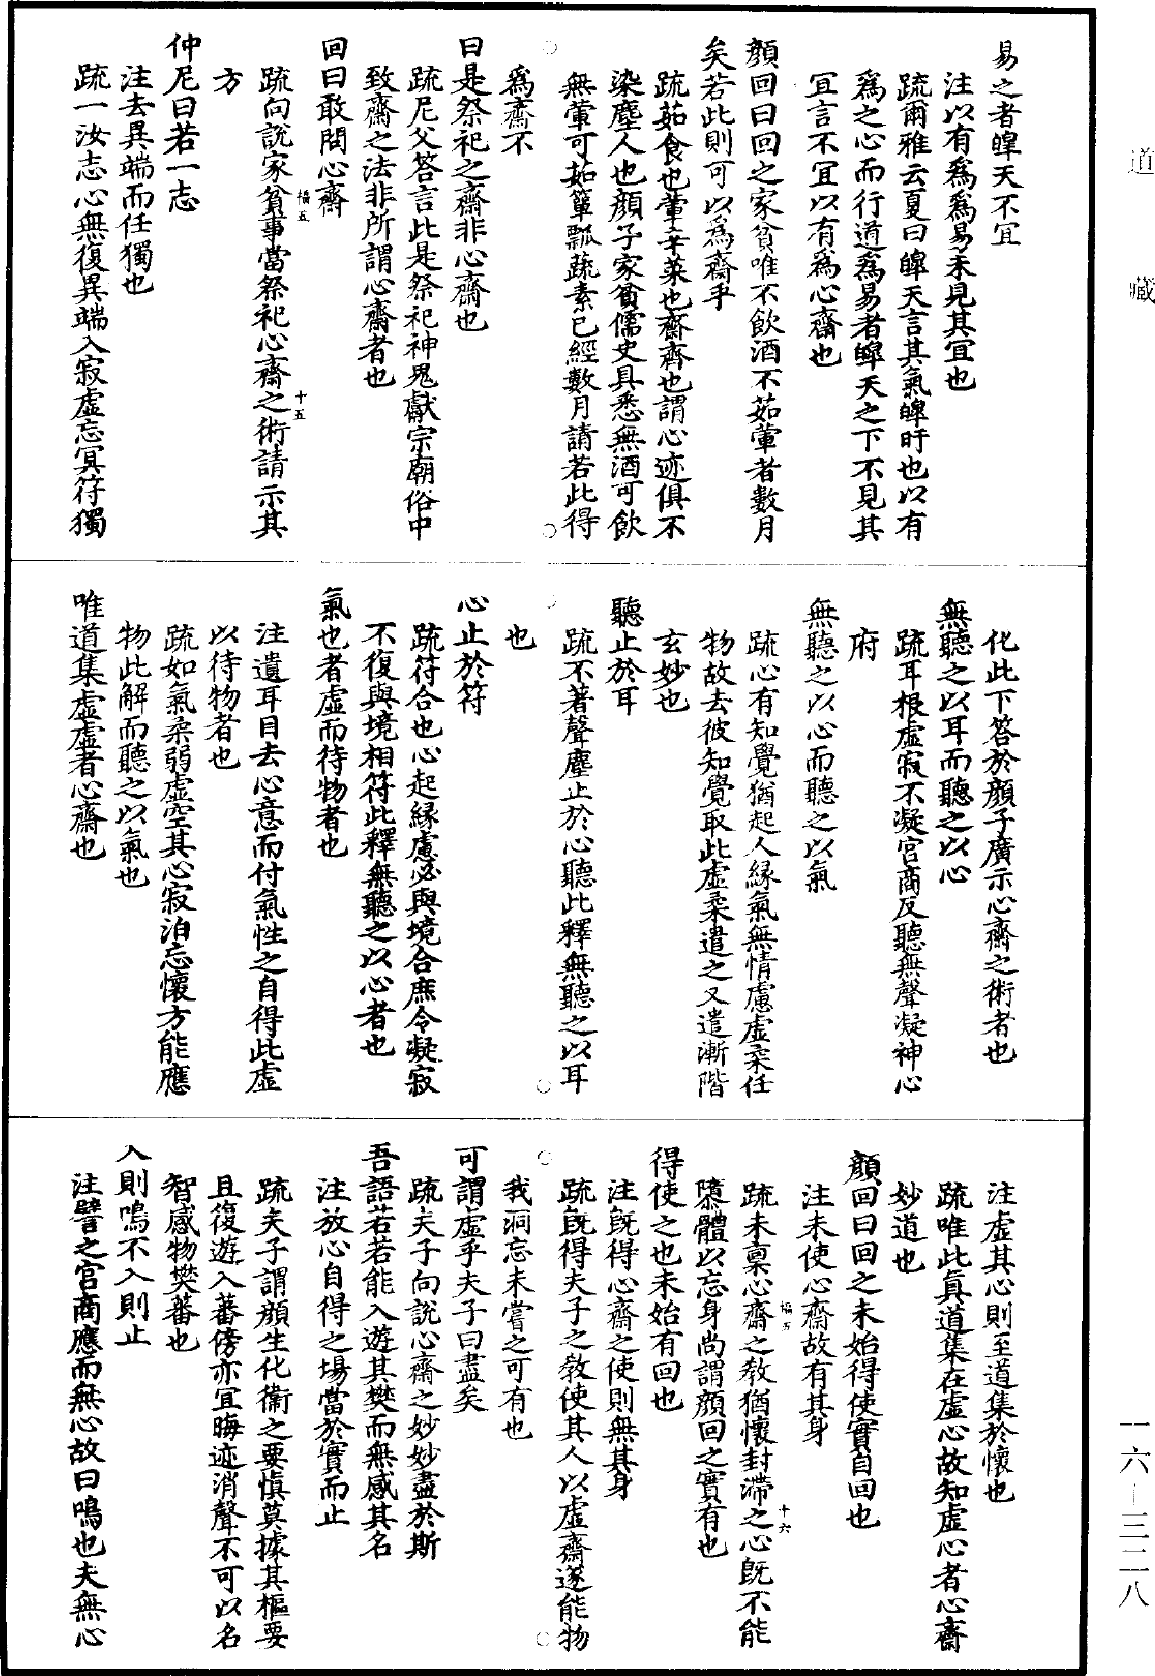 道藏
易之者皡天不宜
注以有爲爲易未見其宜也
疏爾雅云夏曰皡天言其氣皡旰也以有
爲之心而行道爲易者皡天之下不見其
宜言不宜以有爲心齋也
顔回曰回之家貧唯不飲酒不茹葷者數月
矣若此則可以爲齋乎
疏茹食也葷辛菜也齋齊也謂心迹俱不
染塵人也顔子家貧儒史具悉無酒可飲
無葷可茹簞瓢疏素已經數月請若此得
爲齋不
曰是祭祀之齋非心齋也
疏尼父答言此是祭祀神鬼獻宗廟俗中
致齋之法非所謂心齋者也
回曰敢問心齋
福五
十五
疏向說家貧事當祭祀心齋之術請示其
方
仲尼曰若一志
注去異端而任獨也
疏一汝志心無復異端入寂虛忘冥符獨
化此下答於顔子廣示心齋之術者也
無聽之以耳而聽之以心
疏耳根虛寂不凝宮商反聽無聲凝神心
府
無聽之以心而聽之以氣
疏心有知覺猶起人緣氣無情慮虛柔任
物故去彼知覺取此虛柔遣之又遣漸階
玄妙也
聽止於耳
疏不著聲塵止於心聽此釋無聽之以耳
也
心止於符
疏符合也心起緣慮必與境合庶令凝寂
不復與境相符此釋無聽之以心者也
氣也者虛而待物者也
注遺耳目去心意而付氣性之自得此虛
以待物者也
疏如氣柔弱虛空其心寂泊忘懷方能應
物此解而聽之以氣也
唯道集虛虛者心齋也
注虛其心則至道集於懷也
疏唯此眞道集在虛心故知虛心者心齋
妙道也
顔回曰回之未始得使實自回也
注未使心齋故有其身
福五
十六
疏未禀心齋之教猶懷封滯之心旣不能
隳體以忘身尚謂顔回之實有也
得使之也未始有回也
注旣得心齋之使則無其身
疏旣得夫子之教使其人以虛齋遂能物
我洞忘未嘗之可有也
可謂虛乎夫子曰盡矣
疏夫子向說心齋之妙妙盡於斯
吾語若若能入遊其樊而無感其名
注放心自得之場當於實而止
疏夫子謂顔生化衛之要愼莫據其樞要
且復遊入蕃傍亦宜晦迹消聲不可以名
智感物樊蕃也
入則鳴不入則止
注譬之宮商應而無心故曰鳴也夫無心
一六—三二八